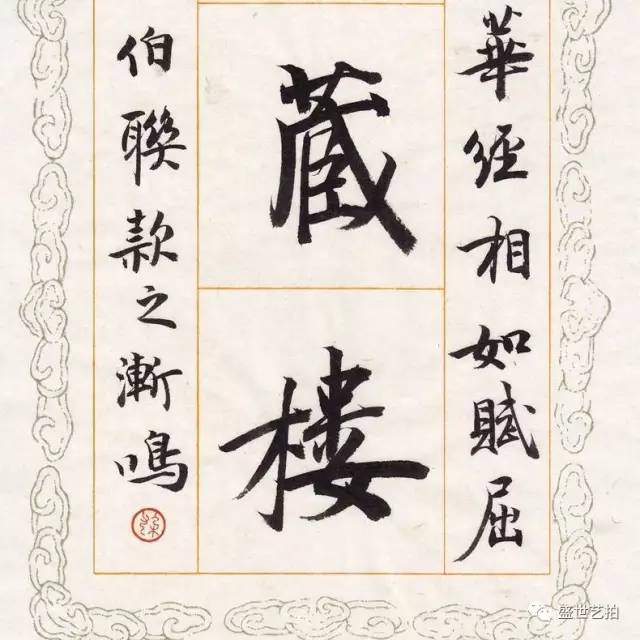 華經相如賦屈
藏樓
伯聯款之漸鳴
盛世艺拍